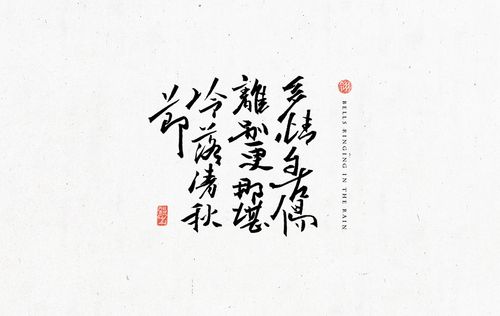 BELLS RINGING IN THE RAIN
多情自古傷
離別更那堪
冷落清秋
節